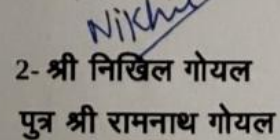 Nikhil
2- श्री निखिल गोयल
पुत्र श्री रामनाथ गोयल